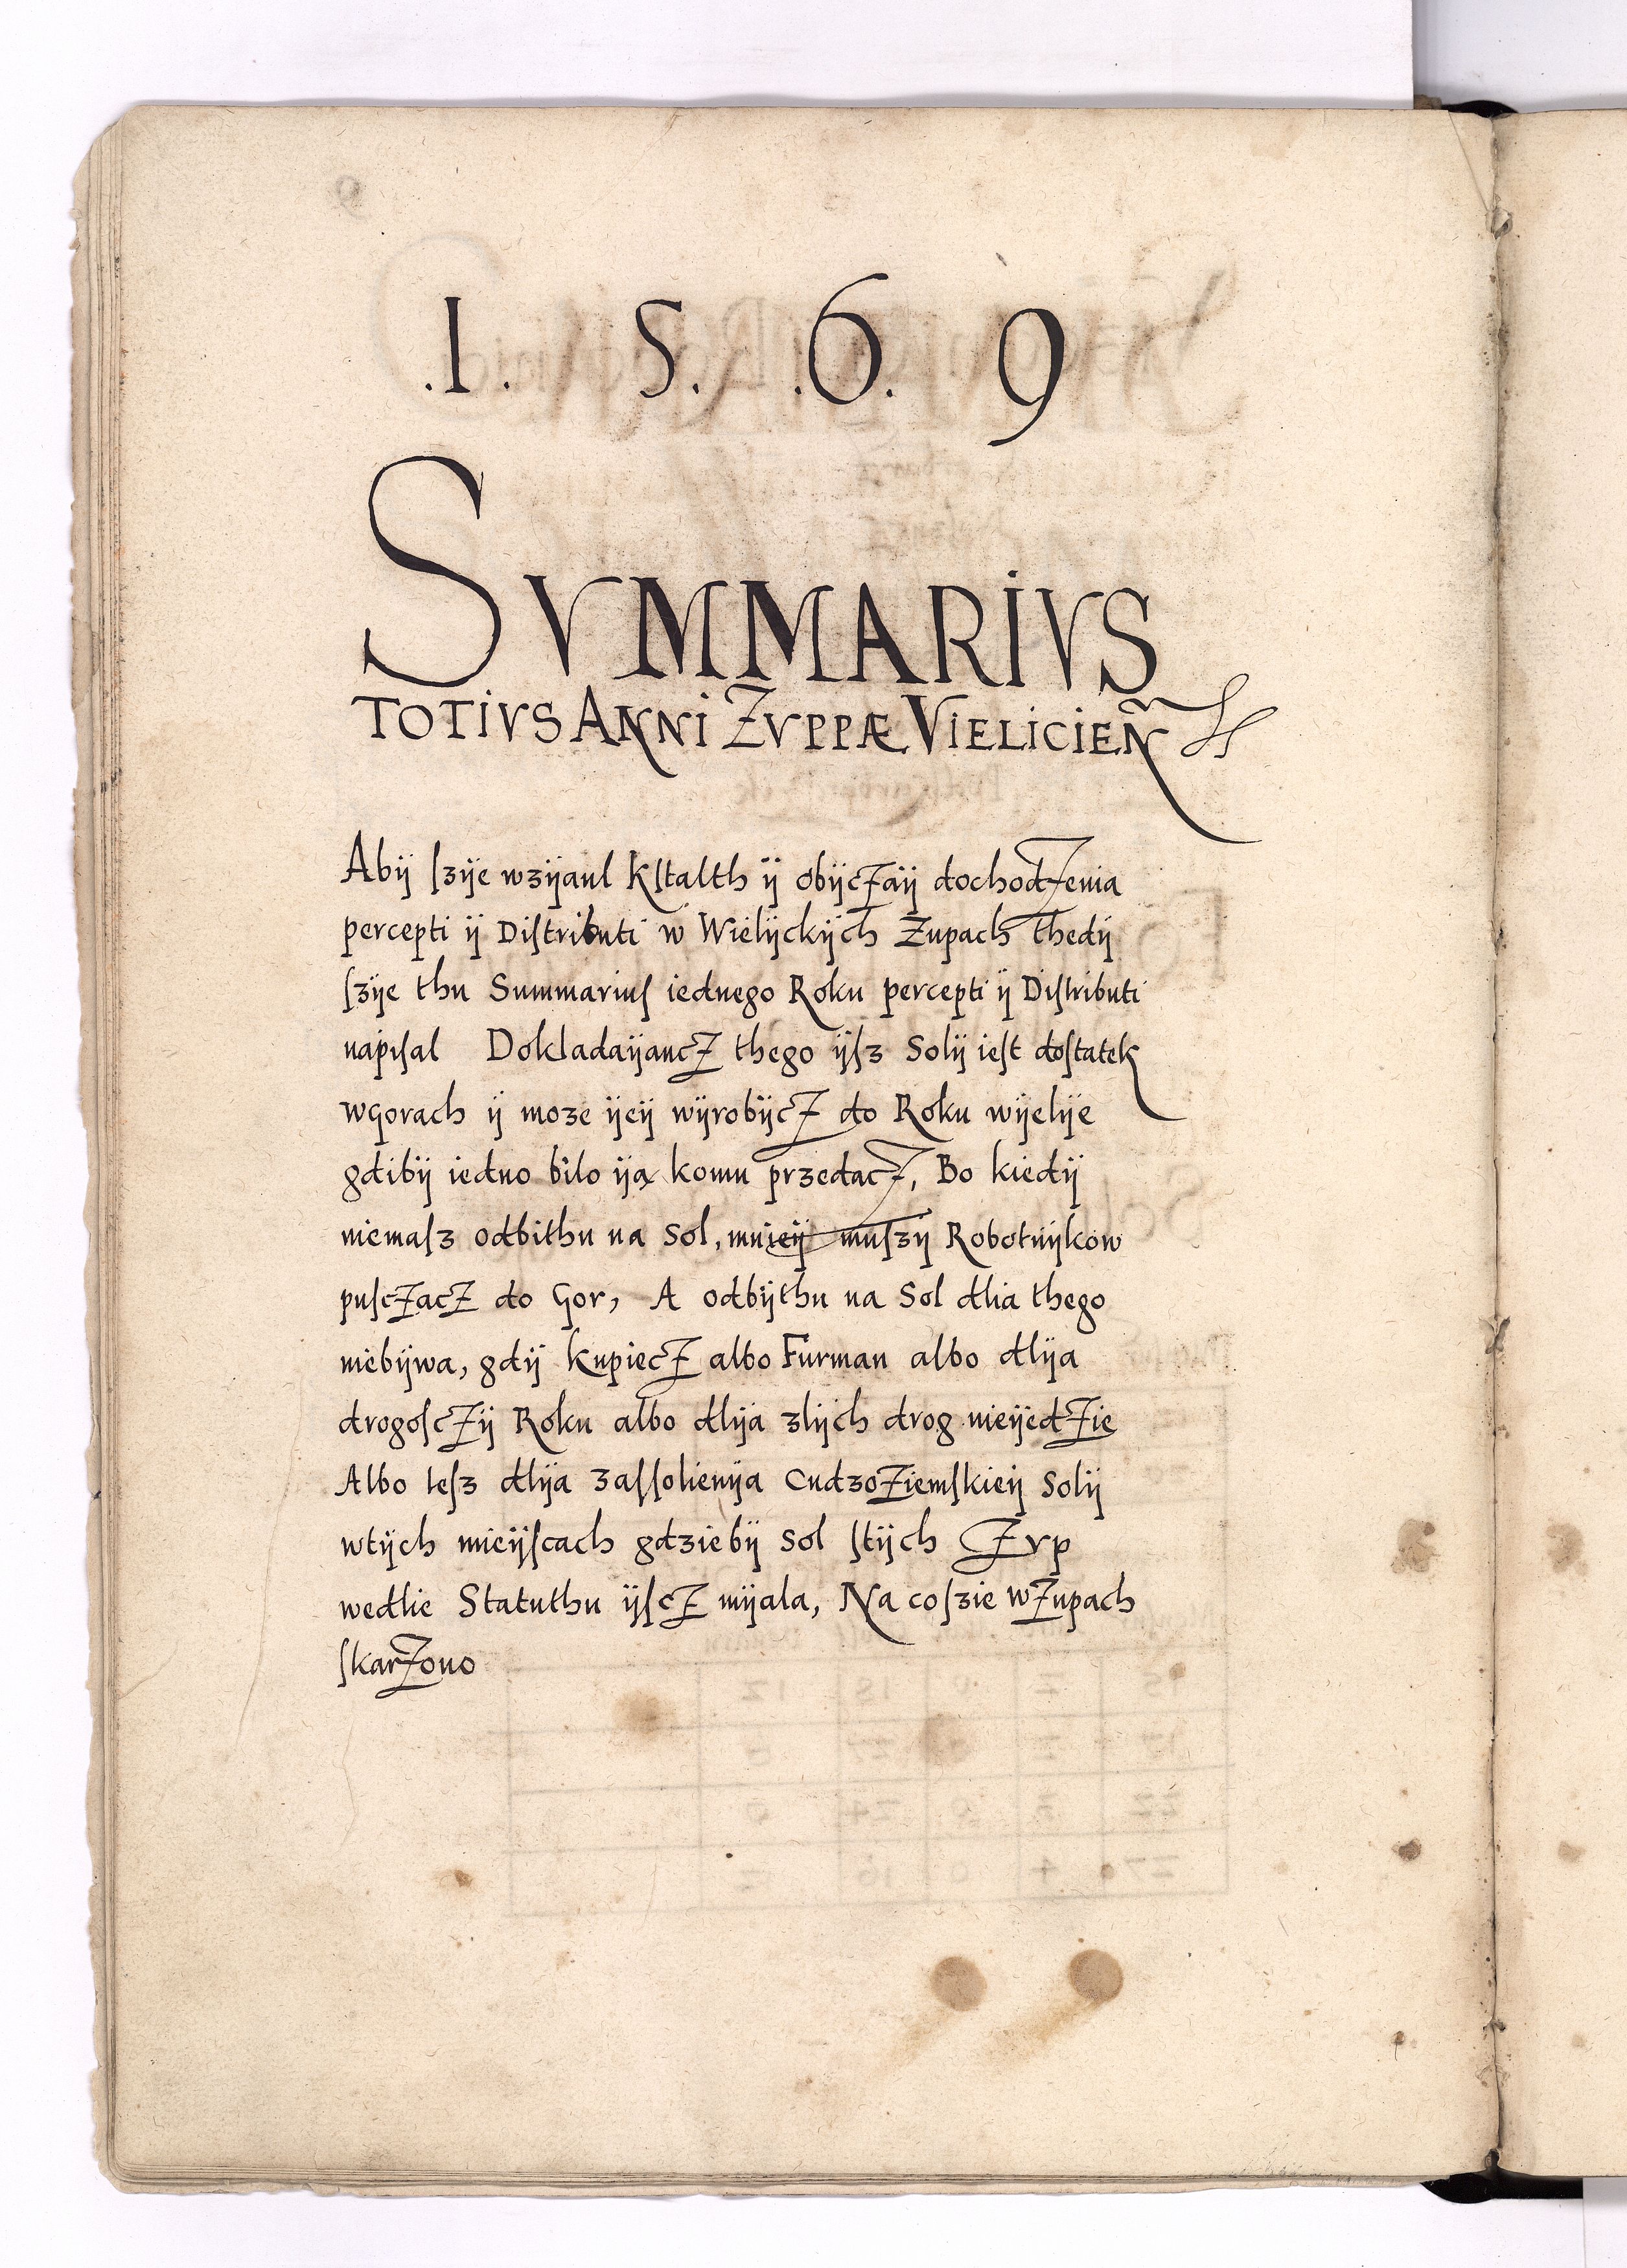 .1. 5. .6. 9
SVMMARIVS
TOTIVS ANNI ZVPPÆ VIELICIEÑ
Abÿ ſzÿe wzÿanl Kſtalth ÿ obÿcżaÿ dochodżenia
percepti ÿ Diſtributi w Wielÿckÿch Żupach thedÿ
ſzÿe thu Summariuſ iednego Roku percepti ÿ Diſtributi
napiſal Dokladaÿancż thego ÿſz Solÿ ieſt doſtatek
wgorach ÿ moze ÿeÿ wÿrobÿcż do Roku wÿelÿe
gdibÿ iedno bilo ÿą komu przedacż, Bo kiedÿ
niemaſz odbithu na Sol, mnieÿ muſzÿ Robotnÿkow
puſcżacż do Gor, A odbÿthu na Sol dlia thego
niebÿwa, gdÿ kupiecż albo Furman albo dlÿa
drogoſcżÿ Roku albo dlÿa zlÿch drog nieÿedżie
Albo teſz dlÿa zaſſolienÿa Cudzożiemſkieÿ Solÿ
wtÿch mieÿſcach gdziebÿ Sol ſtÿch Żvp
wedlie Statuthu ÿſcż mÿala, Na coſzie wŻupach
ſkarżono